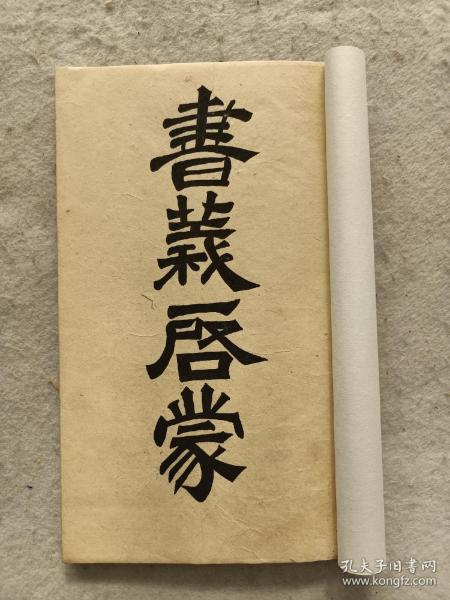 書義启蒙
孔夫子旧书网
www.kongfz.com